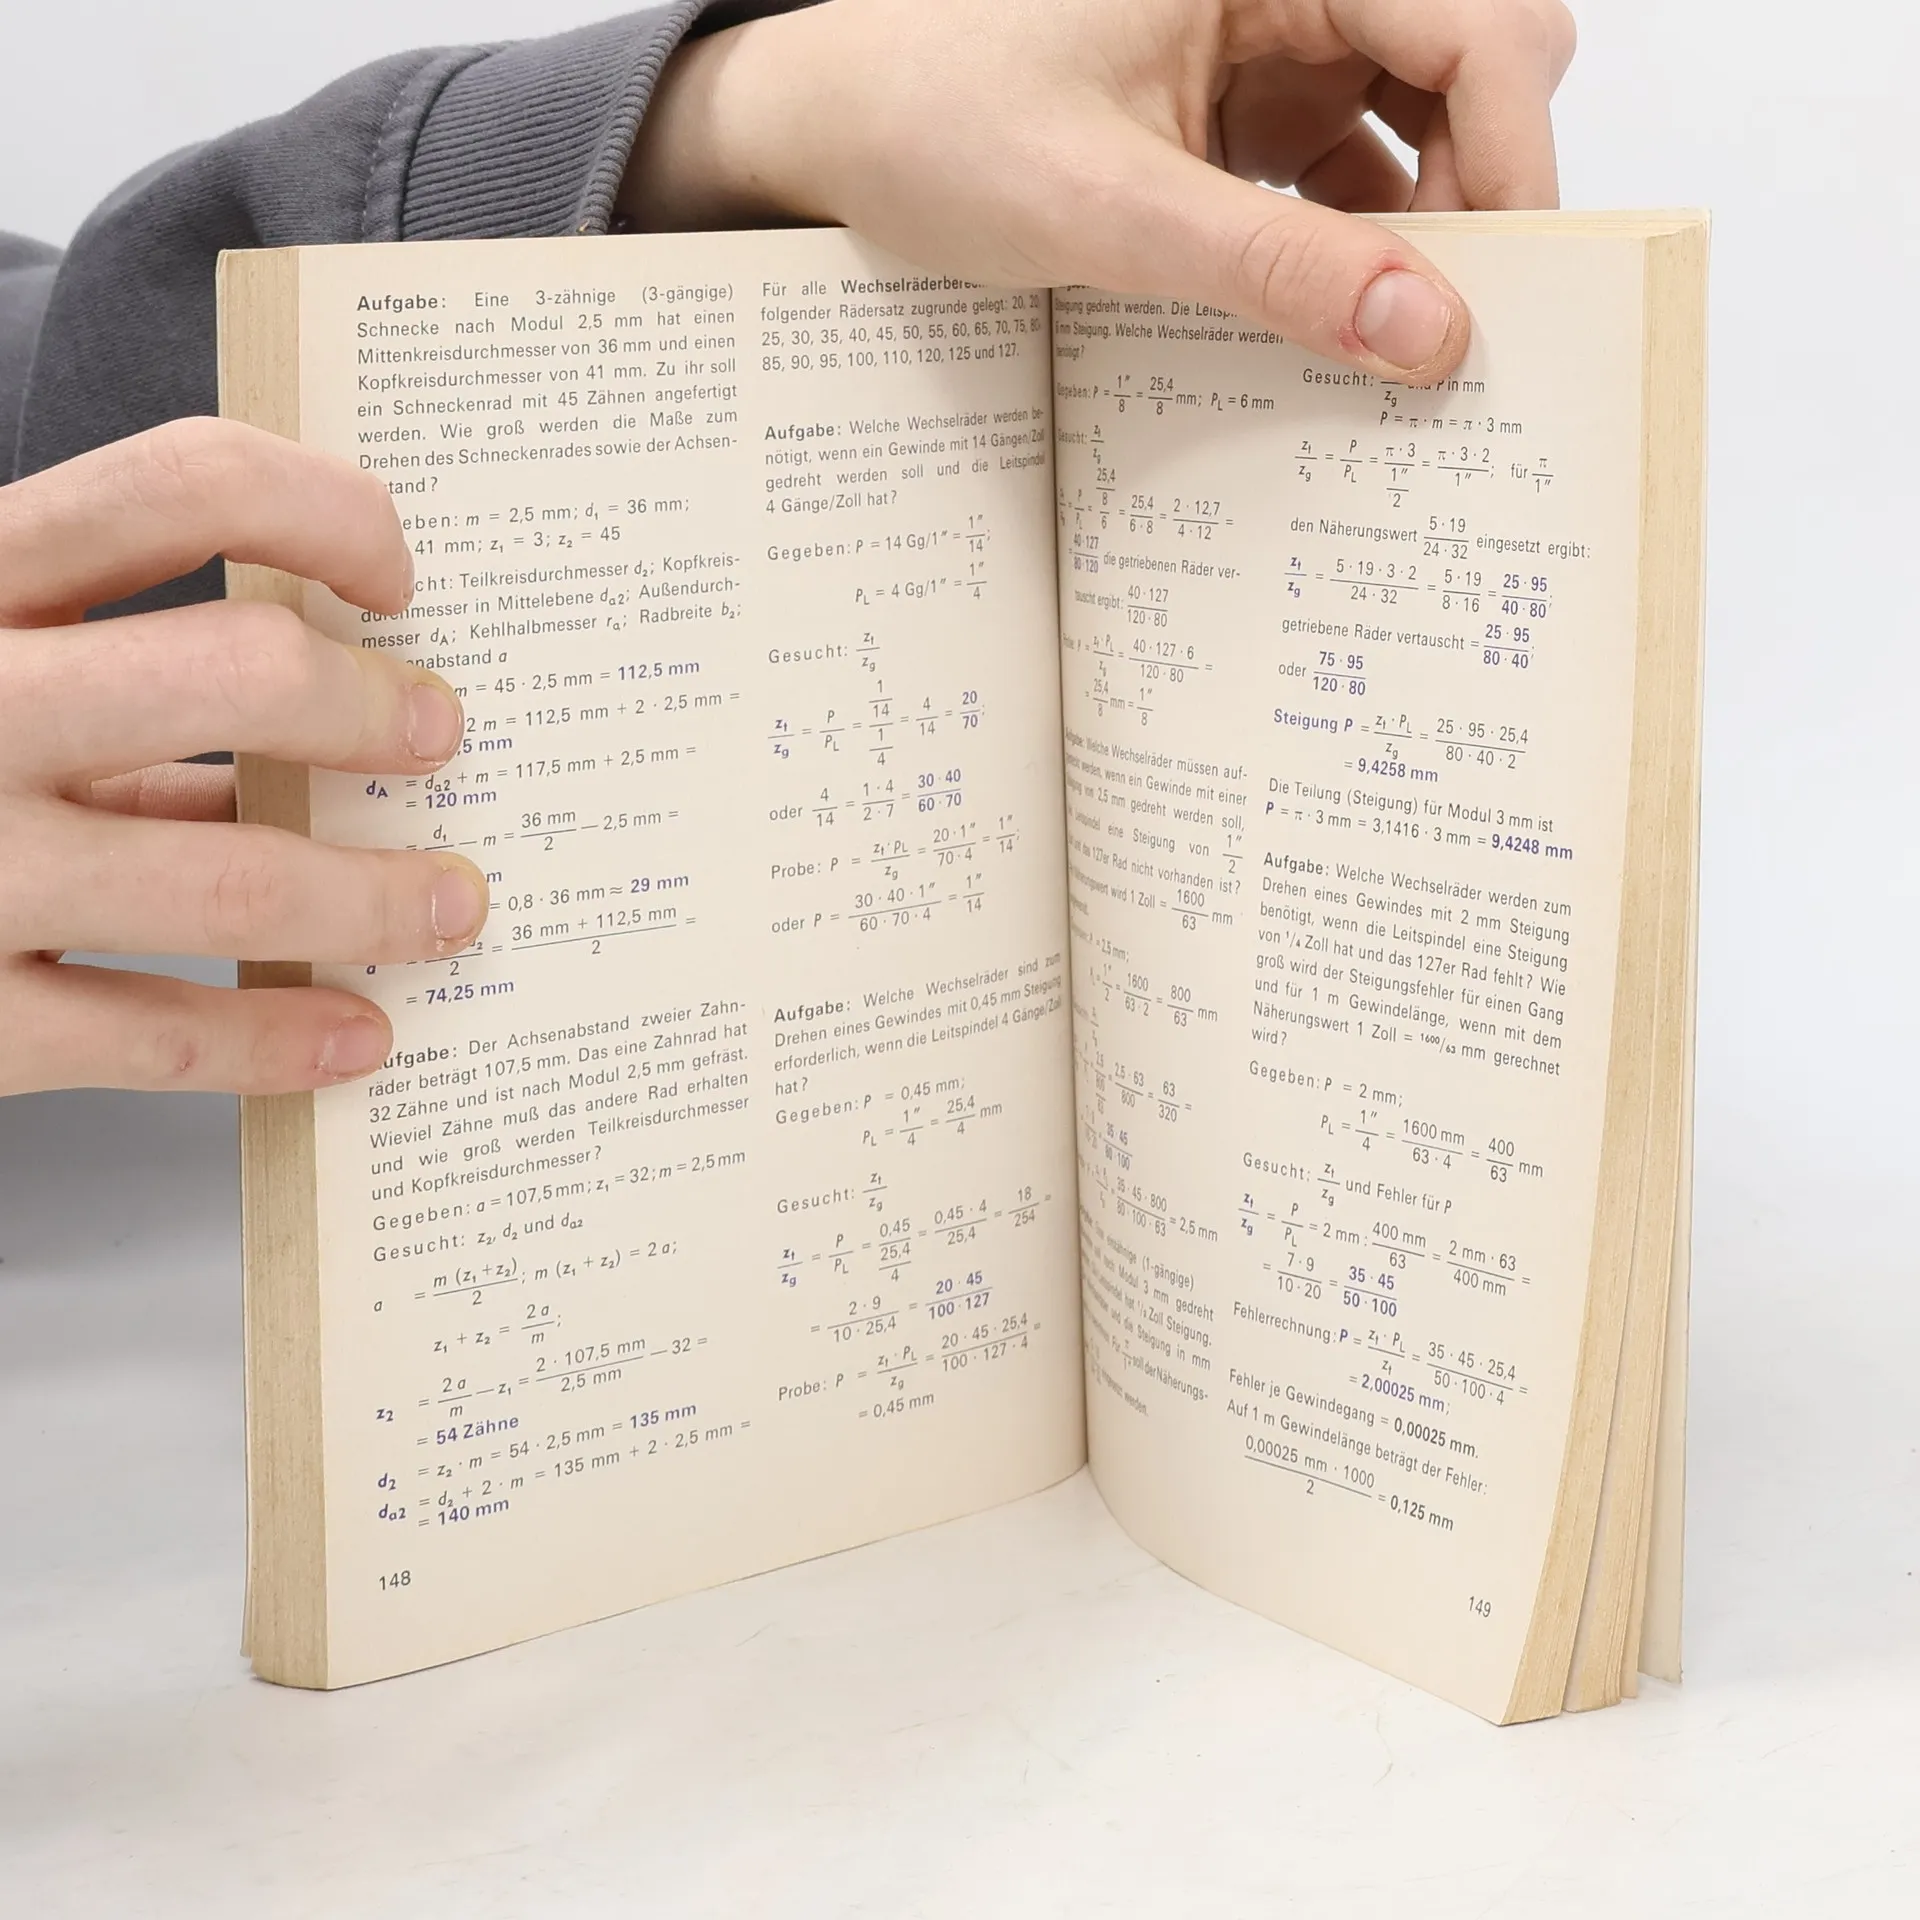 Aufgabe: Eine 3-zähnige (3-gängige)
Schnecke nach Modul 2,5 mm hat einen
Mittenkreisdurchmesser von 36 mm und einen
Kopfkreisdurchmesser von 41 mm. Zu ihr soll
ein Schneckenrad mit 45 Zähnen angefertigt
werden. Wie groß werden die Maße zum
Drehen des Schneckenrades sowie der Achsen-
tand?
eben: m = 2,5 mm; d₁ = 36 mm;
41 mm; z₁ = 3; z₂ = 45
cht: Teilkreisdurchmesser d₂; Kopfkreis-
durchmesser in Mittelebene dₐ₂; Außendurch-
messer d_A; Kehlhalbmesser rₐ; Radbreite b₂;
nabstand a
m = 45 · 2,5 mm = 112,5 mm
2 m = 112,5 mm + 2 · 2,5 mm =
,5 mm
d_A = dₐ₂ + m = 117,5 mm + 2,5 mm =
= 120 mm
= d₁/ — m = 36 mm/2 — 2,5 mm =
m
= 0,8 · 36 mm ≈ 29 mm
a = /2 = 36 mm + 112,5 mm/2 =
= 74,25 mm
ufgabe: Der Achsenabstand zweier Zahn-
räder beträgt 107,5 mm. Das eine Zahnrad hat
32 Zähne und ist nach Modul 2,5 mm gefräst.
Wieviel Zähne muß das andere Rad erhalten
und wie groß werden Teilkreisdurchmesser
und Kopfkreisdurchmesser?
Gegeben: a = 107,5 mm; z₁ = 32; m = 2,5 mm
Gesucht: z₂, d₂ und dₐ₂
a = m (z₁ + z₂)/2; m (z₁ + z₂) = 2 a;
z₁ + z₂ = 2 a/m;
z₂ = 2 a/m — z₁ = 2 · 107,5 mm/2,5 mm — 32 =
= 54 Zähne
d₂ = z₂ · m = 54 · 2,5 mm = 135 mm
dₐ₂ = d₂ + 2 · m = 135 mm + 2 · 2,5 mm =
= 140 mm
148
Für alle Wechselräderbere
folgender Rädersatz zugrunde gelegt: 20, 20
25, 30, 35, 40, 45, 50, 55, 60, 65, 70, 75, 80
85, 90, 95, 100, 110, 120, 125 und 127.
Aufgabe: Welche Wechselräder werden be-
nötigt, wenn ein Gewinde mit 14 Gängen/Zoll
gedreht werden soll und die Leitspindel
4 Gänge/Zoll hat?
Gegeben: P = 14 Gg/1″ = 1″/14;
P_L = 4 Gg/1″ = 1″/4
Gesucht: z_t/z_g
z_t/z_g = P/P_L = 1/14 / 1/4 = 4/14 = 20/70;
oder 4/14 = 1 · 4/2 · 7 = 30 · 40/60 · 70
Probe: P = z_t · P_L/z_g = 20 · 1″/70 · 4 = 1″/14;
oder P = 30 · 40 · 1″/60 · 70 · 4 = 1″/14
Aufgabe: Welche Wechselräder sind zum
Drehen eines Gewindes mit 0,45 mm Steigung
erforderlich, wenn die Leitspindel 4 Gänge/Zoll
hat?
Gegeben: P = 0,45 mm;
P_L = 1″/4 = 25,4/4 mm
Gesucht: z_t/z_g
z_t/z_g = P/P_L = 0,45 / 25,4/4 = 0,45 · 4/25,4 = 18/254 =
= 2 · 9/10 · 25,4 = 20 · 45/100 · 127
Probe: P = z_t · P_L/z_g = 20 · 45 · 25,4/100 · 127 · 4 =
= 0,45 mm
Steigung gedreht werden. Die Leitsp
6 mm Steigung. Welche Wechselräder werden
benötigt?
Gegeben: P = 1″/8 = 25,4/8 mm; P_L = 6 mm
Gesucht: z_t/z_g
= P/P_L = 25,4/8 / 6 = 25,4/6 · 8 = 2 · 12,7/4 · 12 =
= 40·127/80·120 die getriebenen Räder ver-
tauscht ergibt: 40 · 127/120 · 80
P = z_t · P_L/z_g = 40 · 127 · 6/120 · 80 =
= 25,4/8 mm = 1″/8
Aufgabe: Welche Wechselräder müssen auf-
werden, wenn ein Gewinde mit einer
von 2,5 mm gedreht werden soll,
Leitspindel eine Steigung von 1″/2
und das 127er Rad nicht vorhanden ist?
wird 1 Zoll = 1600/63 mm
P = 2,5 mm;
= 1″/2 = 1600/63 · 2 = 800/63 mm
= 2,5 · 63/800 = 63/320 =
= 35 · 45/80 · 100
= 35 · 45 · 800/80 · 100 · 63 = 2,5 mm
(1-gängige)
nach Modul 3 mm gedreht
hat ¹/₂ Zoll Steigung.
und die Steigung in mm
Für π/1″ soll der Näherungs-
werden.
Gesucht: /z_g P in mm
P = π · m = π · 3 mm
z_t/z_g = P/P_L = π · 3 / 1″/2 = π · 3 · 2/1″; für π/1″
den Näherungswert 5 · 19/24 · 32 eingesetzt ergibt:
z_t/z_g = 5 · 19 · 3 · 2/24 · 32 = 5 · 19/8 · 16 = 25 · 95/40 · 80;
getriebene Räder vertauscht = 25 · 95/80 · 40;
oder 75 · 95/120 · 80
Steigung P = z_t · P_L/z_g = 25 · 95 · 25,4/80 · 40 · 2
= 9,4258 mm
Die Teilung (Steigung) für Modul 3 mm ist
P = π · 3 mm = 3,1416 · 3 mm = 9,4248 mm
Aufgabe: Welche Wechselräder werden zum
Drehen eines Gewindes mit 2 mm Steigung
benötigt, wenn die Leitspindel eine Steigung
von ¹/₄ Zoll hat und das 127er Rad fehlt? Wie
groß wird der Steigungsfehler für einen Gang
und für 1 m Gewindelänge, wenn mit dem
Näherungswert 1 Zoll = ¹⁶⁰⁰/₆₃ mm gerechnet
wird?
Gegeben: P = 2 mm;
P_L = 1″/4 = 1600 mm/63 · 4 = 400/63 mm
Gesucht: z_t/z_g und Fehler für P
z_t/z_g = P/P_L = 2 mm : 400 mm/63 = 2 mm · 63/400 mm =
= 7 · 9/10 · 20 = 35 · 45/50 · 100
Fehlerrechnung: P = z_t · P_L/z_t = 35 · 45 · 25,4/50 · 100 · 4 =
= 2,00025 mm;
Fehler je Gewindegang = 0,00025 mm.
Auf 1 m Gewindelänge beträgt der Fehler:
0,00025 mm · 1000/2 = 0,125 mm
149